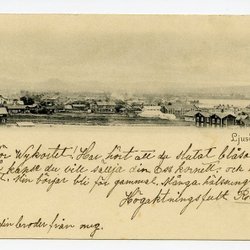 Ljus
för Wykortet! Har hört att du slutat blåsa
kanske du vill sällja din Ess kornett och
den börjar bli för gammal. Många hälsningar
Högaktningsfullt
din broder från mig.